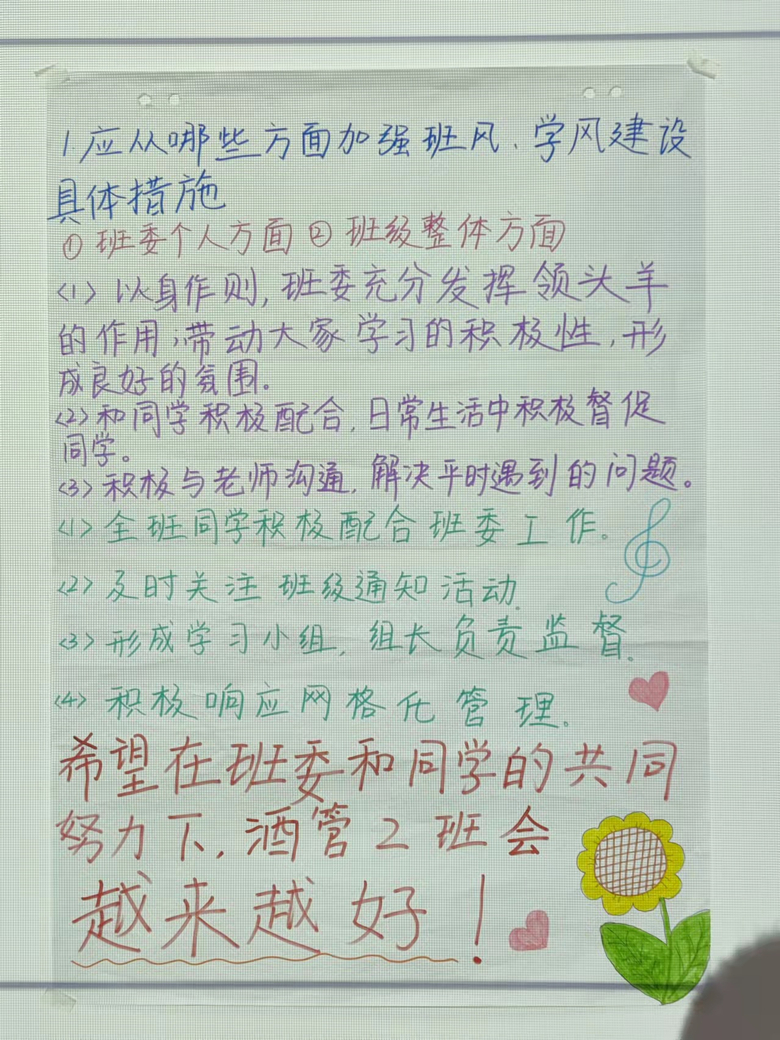 1.应从哪些方面加强班风、学风建设
具体措施
①班委个人方面②班级整体方面
<1>以身作则,班委充分发挥领头羊
的作用;带动大家学习的积极性,形
成良好的氛围。
<2>和同学积极配合,日常生活中积极督促
同学。
<3>积极与老师沟通,解决平时遇到的问题。
<1>全班同学积极配合班委工作。
<2>及时关注班级通知活动.
<3>形成学习小组,组长负责监督.
<4>积极响应网格化管理.
希望在班委和同学的共同
努力下,酒管2班会
越来越好!